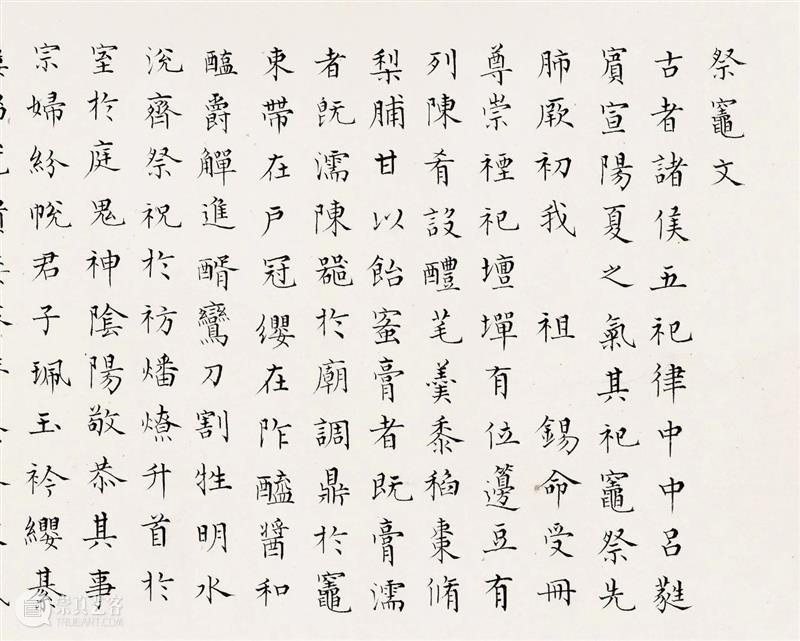 祭竈文
古者諸侯五祀律中中呂蕤
賓宣陽夏之氣其祀竈祭先
肺厥初我 祖 錫命受冊
尊崇禋祀壇墠有位籩豆有
列陳肴設醴芼羹黍稻棗脩
梨脯甘以飴蜜膏者既膏濡
者既濡陳器於廟調鼎於竈
束帶在戶冠纓在阼醯醬和
醢爵觶進醑鸞刀割牲明水
涗齊祭祝於祊燔燎升首於
室於庭鬼神陰陽敬恭其事
宗婦紛帨君子珮玉衿纓綦
崇真艺客